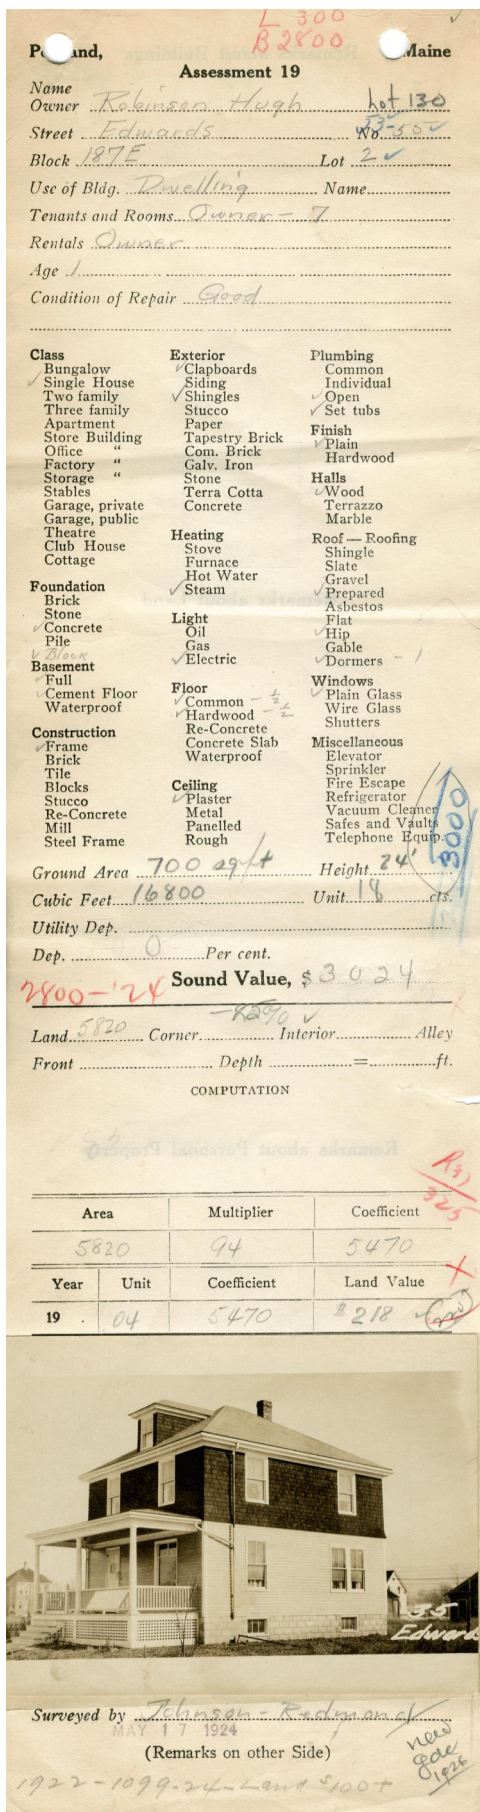 L 300
B 2800
Portland, Maine
Assessment 19
Name
Owner Robinson Hugh Lot 130
Street Edwards No. 53-55
Block 187E Lot 2
Use of Bldg. Dwelling Name
Tenants and Rooms Owner - 7
Rentals Owner
Age 1
Condition of Repair Good
Class
Bungalow
Single House
Two family
Three family
Apartment
Store Building
Office "
Factory "
Storage "
Stables
Garage, private
Garage, public
Theatre
Club House
Cottage
Foundation
Brick
Stone
Concrete
Pile
Block
Basement
Full
Cement Floor
Waterproof
Construction
Frame
Brick
Tile
Blocks
Stucco
Re-Concrete
Mill
Steel Frame
Exterior
Clapboards
Siding
Shingles
Stucco
Paper
Tapestry Brick
Com. Brick
Galv. Iron
Stone
Terra Cotta
Concrete
Heating
Stove
Furnace
Hot Water
Steam
Light
Oil
Gas
Electric
Floor
Common - 1/2
Hardwood - 1/2
Re-Concrete
Concrete Slab
Waterproof
Ceiling
Plaster
Metal
Panelled
Rough
Plumbing
Common
Individual
Open
Set tubs
Finish
Plain
Hardwood
Halls
Wood
Terrazzo
Marble
Roof — Roofing
Shingle
Slate
Gravel
Prepared
Asbestos
Flat
Hip
Gable
Dormers - 1
Windows
Plain Glass
Wire Glass
Shutters
Miscellaneous
Elevator
Sprinkler
Fire Escape
Refrigerator
Vacuum Cleaner
Safes and Vaults
Telephone Equip.
3000
Ground Area 700 sq ft Height 24'
Cubic Feet 16800 Unit 18 cts.
Utility Dep.
Dep. 0 Per cent.
Sound Value, $ 3024
2800-'24
Land 5820 Corner Interior Alley
Front Depth = ft.
COMPUTATION
325
Area Multiplier Coefficient
5820 94 5470
Year Unit Coefficient Land Value
19 04 5470 $218
35
Edward
Surveyed by Johnson - Redmond
MAY 17 1924
(Remarks on other Side)
new
gar
1926
1922-1099-24-Land $100+